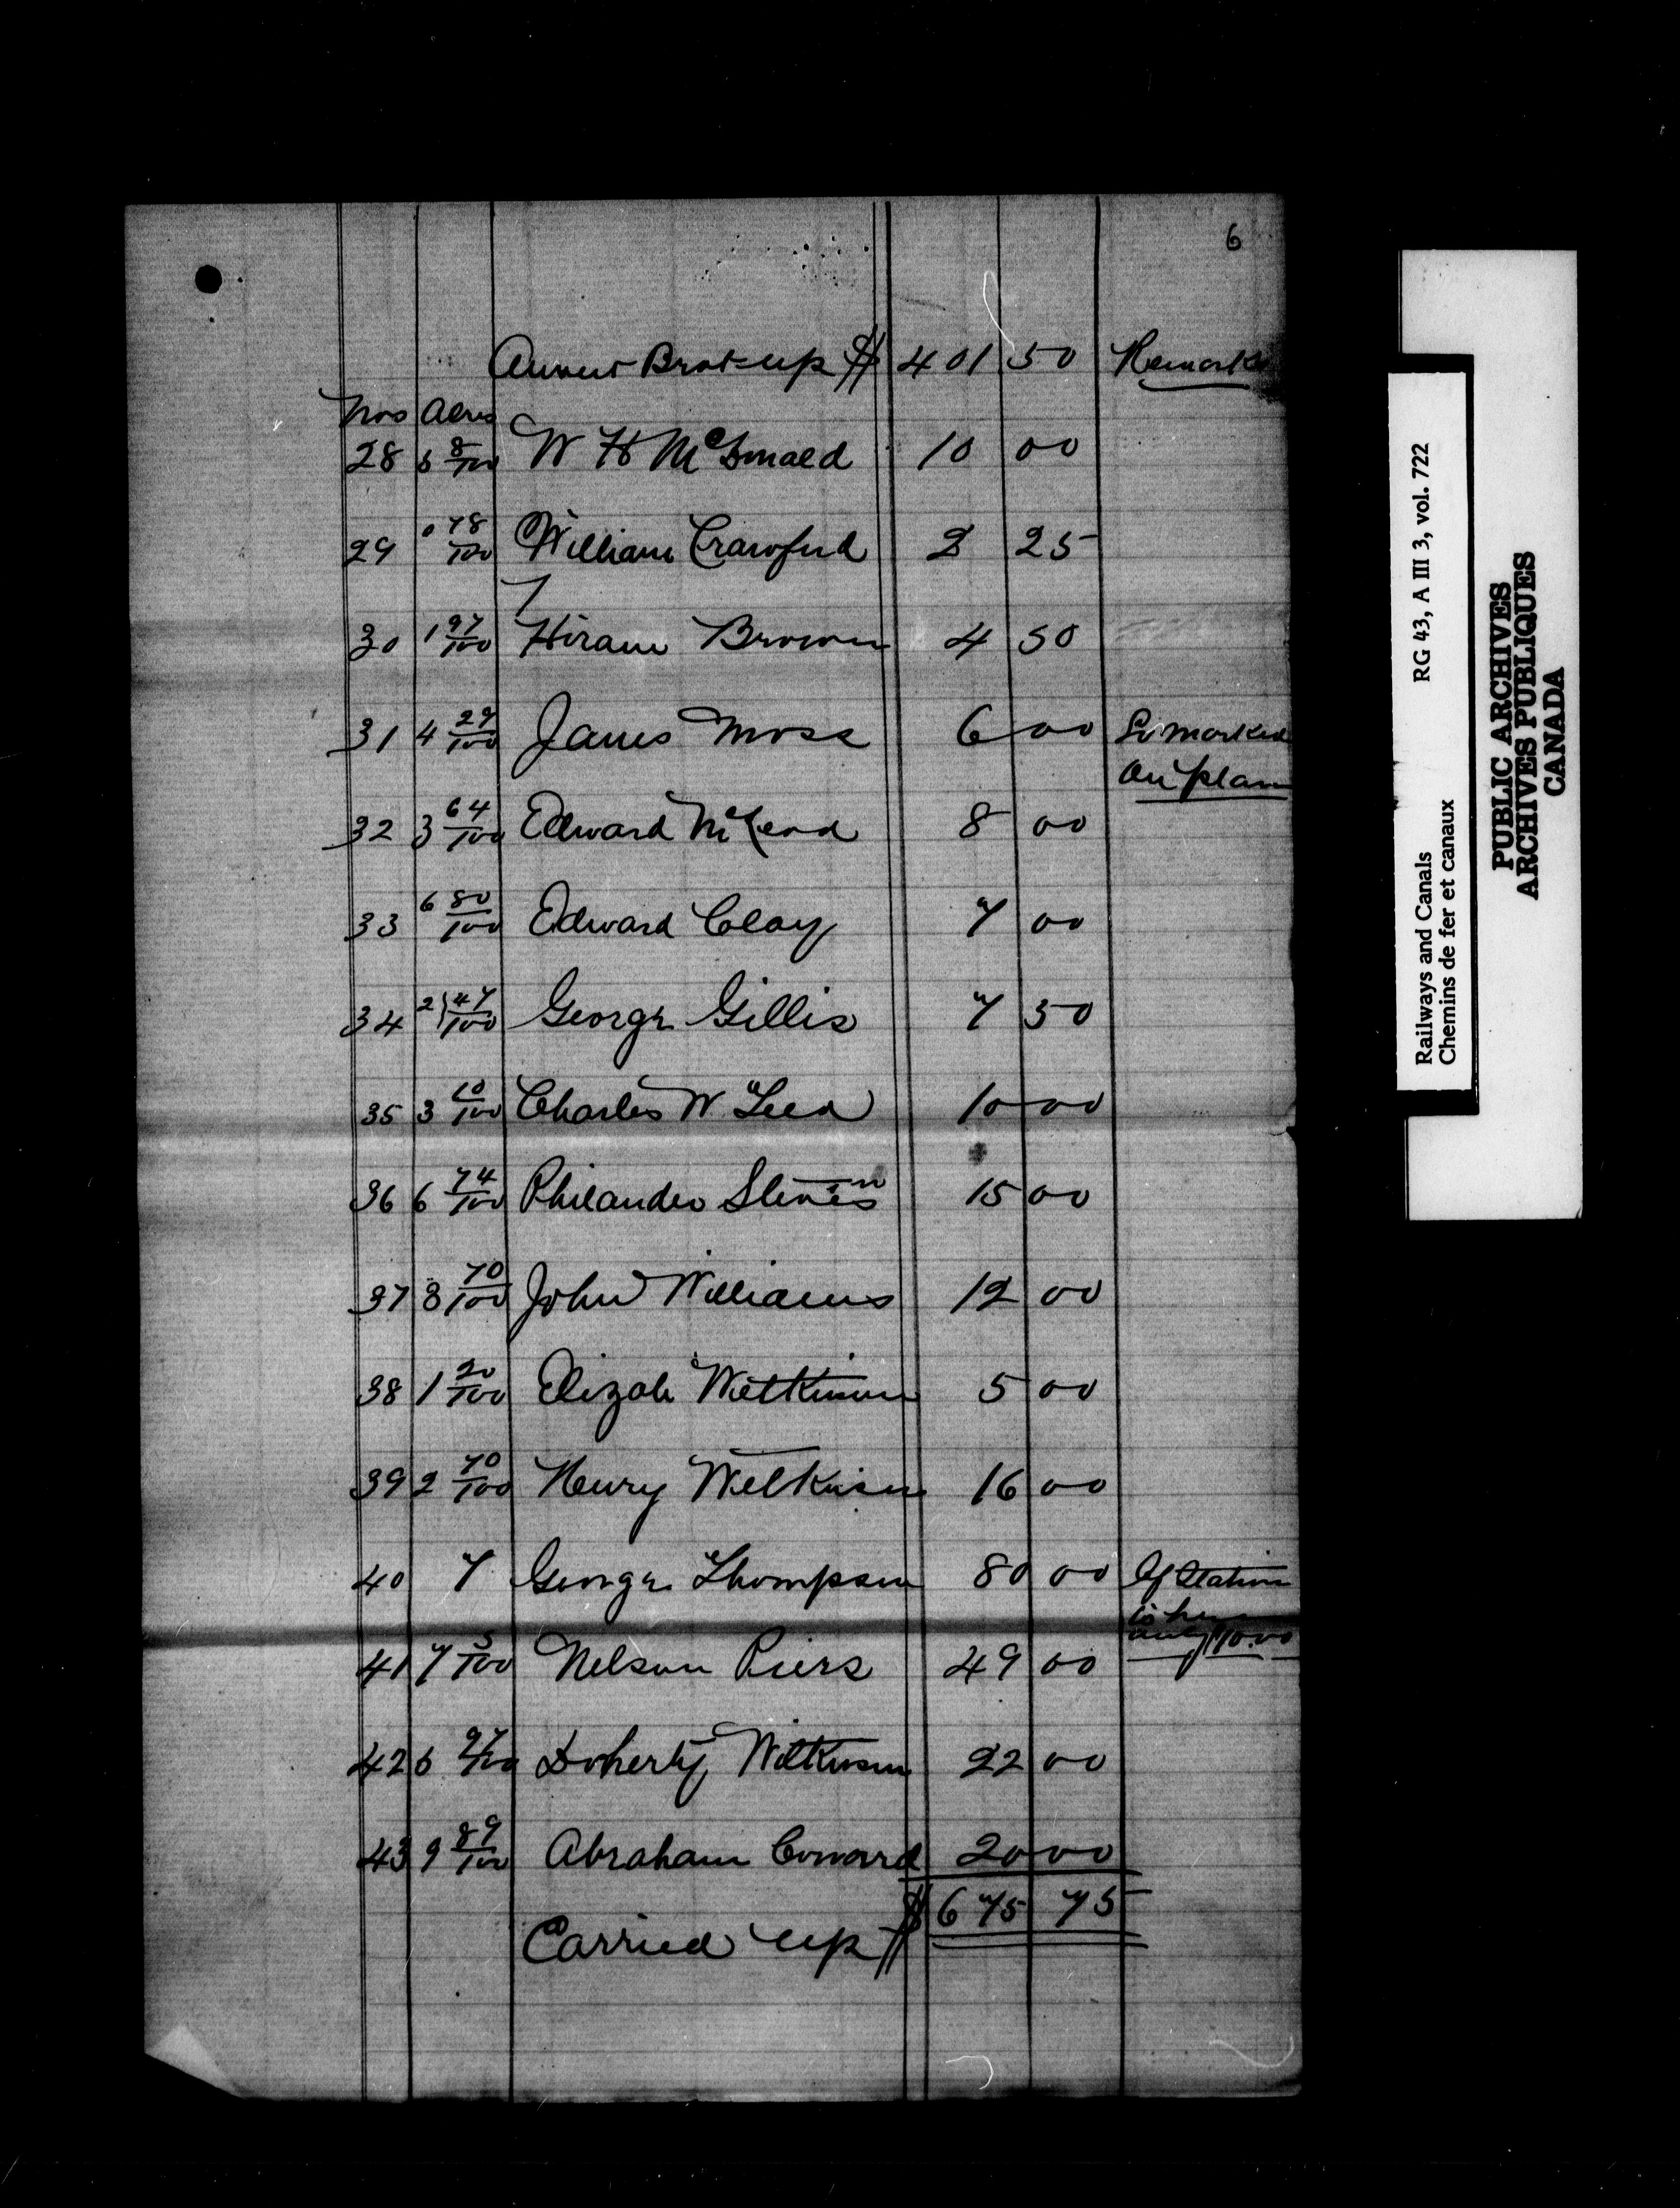 6
Amount Brot up $ 401 50 Remarks
Nos Acres
28 5 8/100 W H McDonald 10 00
29 0 78/100 William Crawford 2 25
30 1 97/100 Hiram Brown 4 50
31 4 27/100 James Moss 6 00 So marked
on plan
32 3 64/100 Edward McLeod 8 00
33 6 80/100 Edward Clay 7 00
34 2 47/100 George Gillis 7 50
35 3 10/100 Charles W Teed 10 00
36 6 74/100 Philander 15 00
37 8 70/100 John Williams 12 00
38 1 20/100 Elizah Wilkinson 5 00
39 2 70/100 Henry Wilkinson 16 00
40 7 George Thompson 80 00 If Station
is here
only 10.00
41 7 5/100 Nelson Piers 49 00
42 6 97/100 Doherty Wilkinson 22 00
43 9 89/100 Abraham Conard 20 00
$ 675 75
Carried up $
Railways and Canals RG 43, A III 3, vol. 722
Chemins de fer et canaux
PUBLIC ARCHIVES
ARCHIVES PUBLIQUES
CANADA